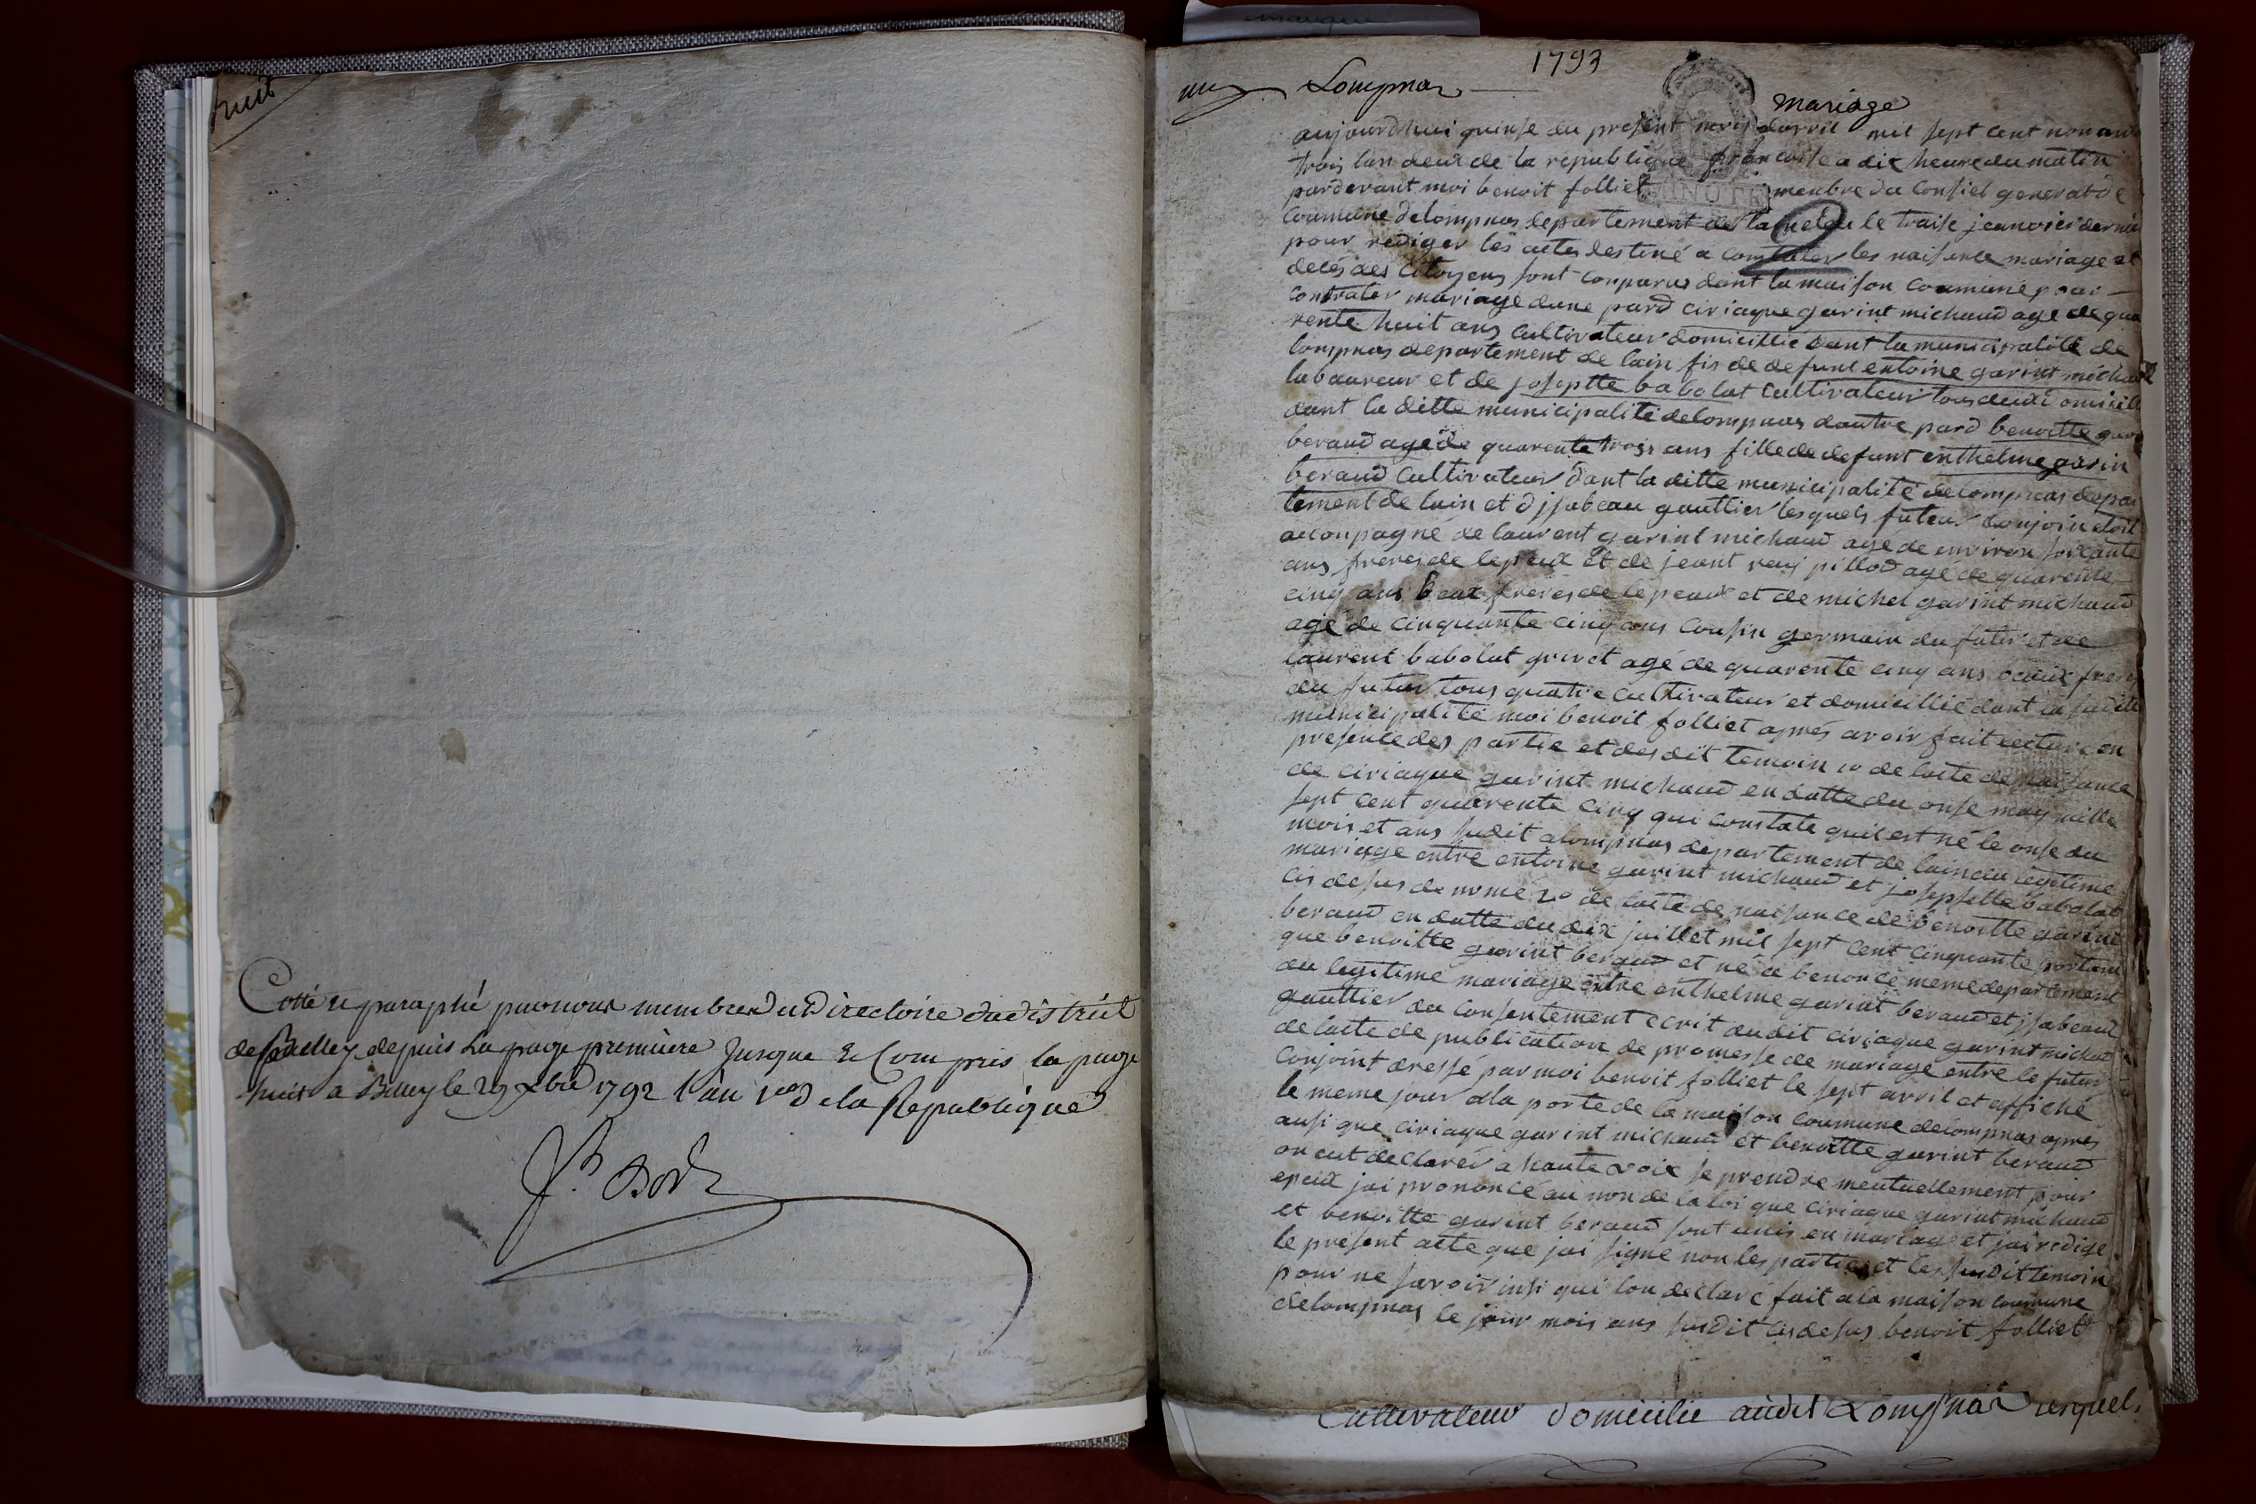 huit
Cotté et paraphé par nous membre du Directoire du district
de Belley depuis la page première jusque et compris la page
huit a Belley le 29 xbre 1792 l'an 1er de la Republique
1793
un Lompnas
mariage
aujourdhui quinse du present mois davril mil sept cent nonante
trois lan deux de la republique francoise a dix heure du matin
pardevant moi benoit folliet menbre du Consiel general de
Commune de lompnas departement de lain eleu le traise jeanvier dernie
pour rediger les actes destiné a constater les naisance mariage et
decés des Citoyens sont conparus dant la maison Commune pour
contrater mariage dune pard ciriaque garint michaud age de qua
rente huit ans cultivateur domicillié dant la municipalité de
lompnas departement de lain fis de defunt entoine garint michaud
laboureur et de josephtte babolat cultivateur tous deux omicill
dant la ditte municipalité de lompnas dautre pard benoitte gari
beraud agé de quarente trois ans fille de defunt enthelme garin
beraud cultivateur dant la ditte municipalité de lompnas depar
tement de lain et djsabeau gauttier lesquels futeur conjoin etoit
acconpagné de laurent garint michaud age de environ soicante
ans freres de lepeux et de jeant ray pillod agé de quarente
cinq ans beaux freres de lepeaux et de michel garint michaud
agé de cinquante cinq ans cousin germain du futur et de
laurent babolat grivet agé de quarente cinq ans beaux frere
du futur tous quatre cultivateur et domicillié dant la sudite
municipalité moi benoit folliet aprés avoir fait lecture en
presence des partie et des dit temoin 1o de lacte de naisance
de ciriaque garint michaud en datte du onse may mille
sept cent quarente cinq qui constate quil est né le onse du
mois et ans sudit a lompnas departement de lain du legitime
mariage entre entoine garint michaud et josephtte babolat
cis desus denomé 2o de lacte de naisance de benoitte garint
beraud en datte du dix juillet mil sept cent cinquante portant
que benoitte garint beraud et né a benonce meme departement
du legitime mariage entre enthelme garint beraud et jsabeau
gauttier du consentement ecrit dudit ciriaque garint michaud
de lacte de publication de promesse de mariage entre le futur
conjoint dressé par moi benoit folliet le sept avril et affiché
le meme jour a la porte de la maison commune de lompnas apres
ausi que ciriaque garint michaud et benoitte garint beraud
on eut declarér a haute voix se prendre meutuellement pour
epeux jai prononcé au non de la loi que ciriaque garint michaud
et benoitte garint beraud sont unis en mariage et jai redigé
le present acte que jai signe non les parties et les sudit temoin
pour ne savoir insi qui lon declaré fait a la maison commune
de lompnas le jour mois ans susdit cis desus benoit folliet
Cultivateur domicilié audit Lompnas lesquels